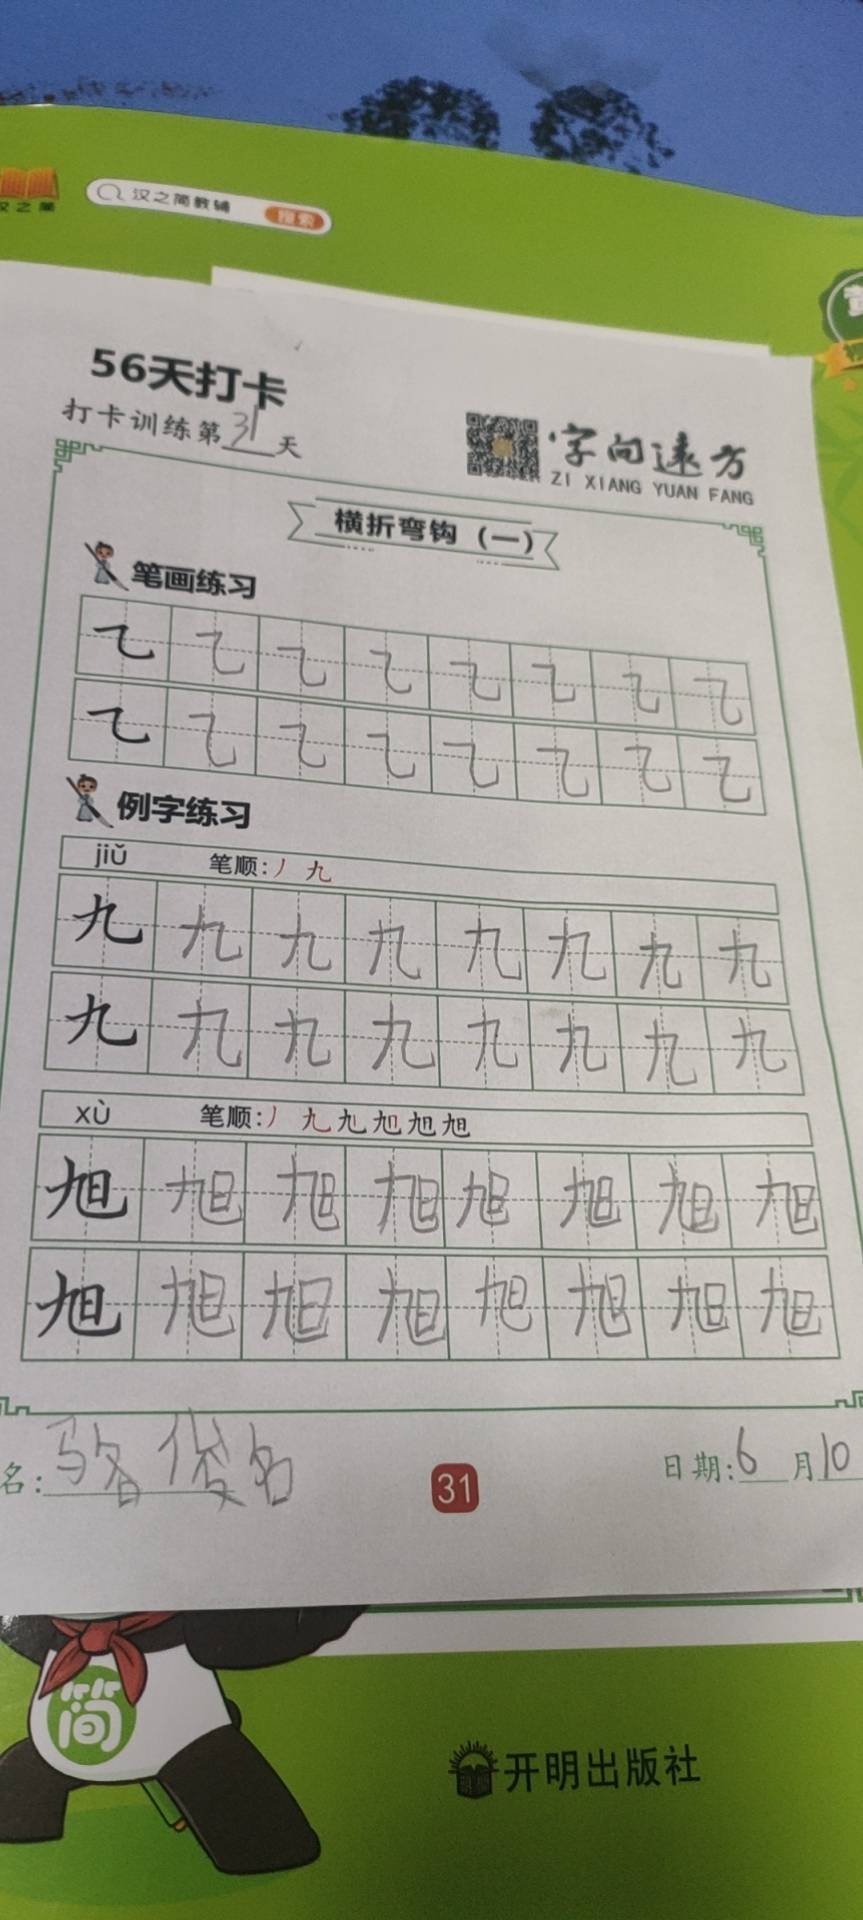 汉之简
汉之简教辅 搜索
56天打卡
打卡训练第31天
字向远方
ZI XIANG YUAN FANG
横折弯钩（一）
笔画练习
乙 乙 乙 乙 乙 乙 乙 乙
乙 乙 乙 乙 乙 乙 乙 乙
例字练习
jiǔ 笔顺:丿 九
九 九 九 九 九 九 九 九
九 九 九 九 九 九 九 九
xù 笔顺:丿 九 九 旭 旭 旭
旭 旭 旭 旭 旭 旭 旭 旭
旭 旭 旭 旭 旭 旭 旭 旭
名: 骆俊名
31
日期:6月10
简
开明出版社